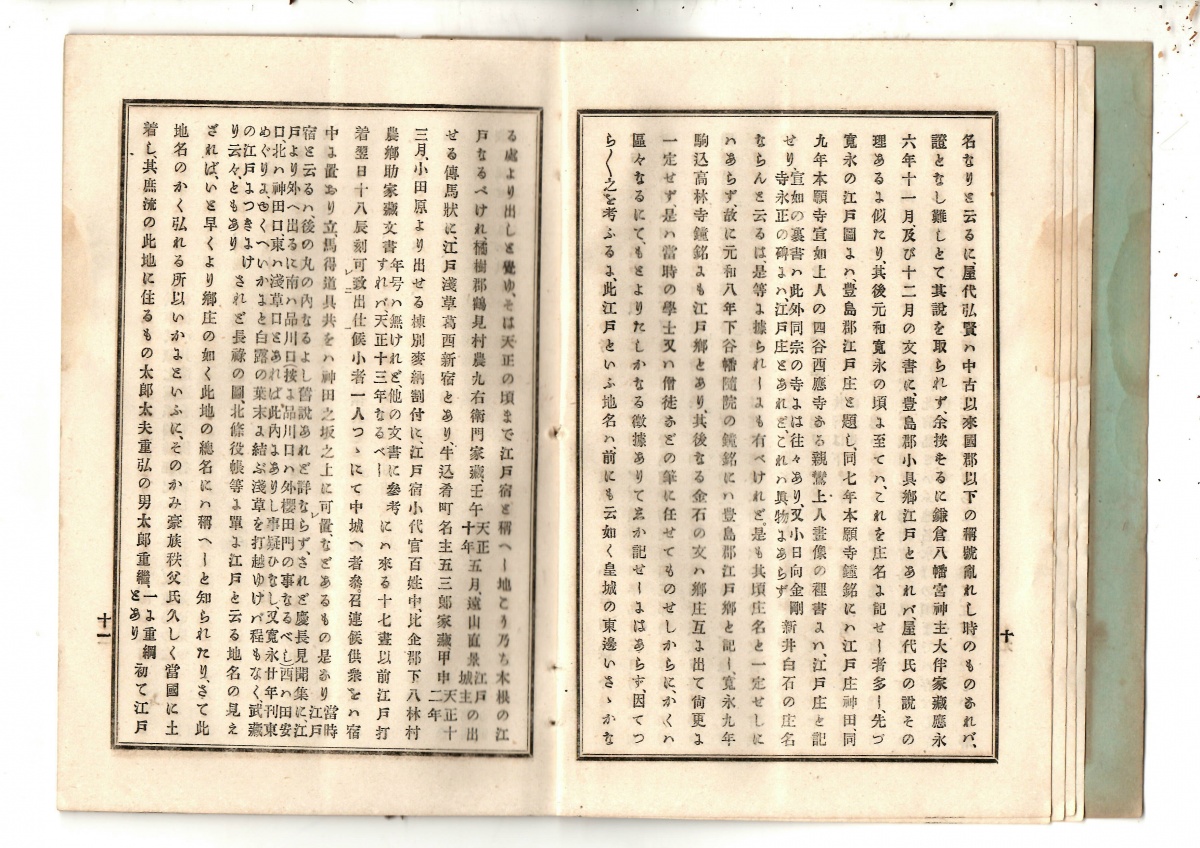 名なりと云るに、屋代弘賢ハ中古以來國郡以下の稱號亂れし時のものあれバ、
證となし難しとて其說を取られず、余按そるに鎌倉八幡宮神主大伴家藏應永
六年十一月及び十二月の文書に、豊島郡小具鄉江戸とあれバ、屋代氏の說その
理あるよ似たり、其後元和寛永の頃よ至てハ、これを庄名よ記せし者多し、先づ
寛永の江戸圖よハ豊島郡江戸庄と題し、同七年本願寺鐘銘にハ江戸庄神田、同
九年本願寺宣如上人の四谷西應寺ある親鸞上人畫像の裡書よハ、江戸庄と記
せり、宣如の裏書ハ此外同宗の寺よは往々あり、又小日向金剛
寺永正の碑よハ江戸庄とあれど、これハ眞物よあらず
新井白石の庄名
ならんと云るは、是等よ據られしよも有べけれど、是も其頃庄名と一定せしに
ハあらず、故に元和八年下谷幡隨院の鐘銘にハ豊島郡江戸鄉と記し、寛永九年
駒込高林寺鐘銘よも江戸鄉とあり、其後なる金石の文ハ鄉庄互よ出て尙更よ
一定せず、是ハ當時の學士又ハ僧徒あどの筆に任せてものせしからにかくハ
區々なるにて、もとよりたしかなる徵據ありて志か記せしよはあらず、因てつ
ら〱之を考ふるよ、此江戸といふ地名ハ前にも云如く皇城の東邊いさゝかな
十
る處より出しと覺ゆそは天正の頃まで江戸宿と稱へし地こり乃ち木根の江
戸なるべけれ、橘樹郡鶴見村農九右衛門家藏、壬午
天正
十年
五月、遠山直景
江戸
城主
の出
せる傳馬狀に、江戸淺草葛西新宿とあり、牛込肴町名主五三郎家藏、甲申
天正十
二年
三月、小田原より出せる棟別麥納割付に、江戸宿小代官百姓中、比企郡下八林村
農鄉助家藏文書
年号ハ無けれど、他の文書に參考
すれバ、天正十三年なるべし
にハ來る十七晝以前江戸打
着翌日十八辰刻可致出仕候小者一人つゝにて中城へ者參。召連候供衆をハ宿
中よ置おり立馬得道具共をハ神田之坂之上に可置、などあるもの是あり
當時
江戸
宿と云るハ、後の丸の內なるよし舊說あれど詳ならず、されど慶長見聞集に、江
戸より外へ出るに南ハ品川口接よ品川口ハ外櫻田門の事なるべし西ハ田安
口、北ハ神田口、東ハ淺草口とあれば此內よありし事疑ひなし、又寛永廿年刊東
めぐりよ白くへいかよと白露の葉末よ結ぶ淺草を打越ゆけバ程もなく、武藏
の江戸よつきよけ
り云々ともあり
されど長祿の圖、北條役帳等よ單よ江戸と云る地名の見え
ざれば、いと早くより鄉庄の如く此地の總名にハ稱へしと知られたり、さて此
地名のかく弘れる所以いかよといふに、そのかみ豪族秩父氏久しく當國に土
着し、其庶流の此地に住るもの太郎太夫重弘の男太郎重繼、
一よ重綱
とあり
初て江戸
十一